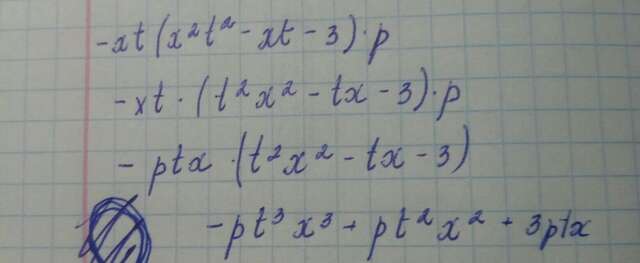 -xt(x²t² - xt - 3)·p
-xt·(t²x² - tx - 3)·p
-ptx·(t²x² - tx - 3)
-pt³x³ + pt²x² + 3ptx